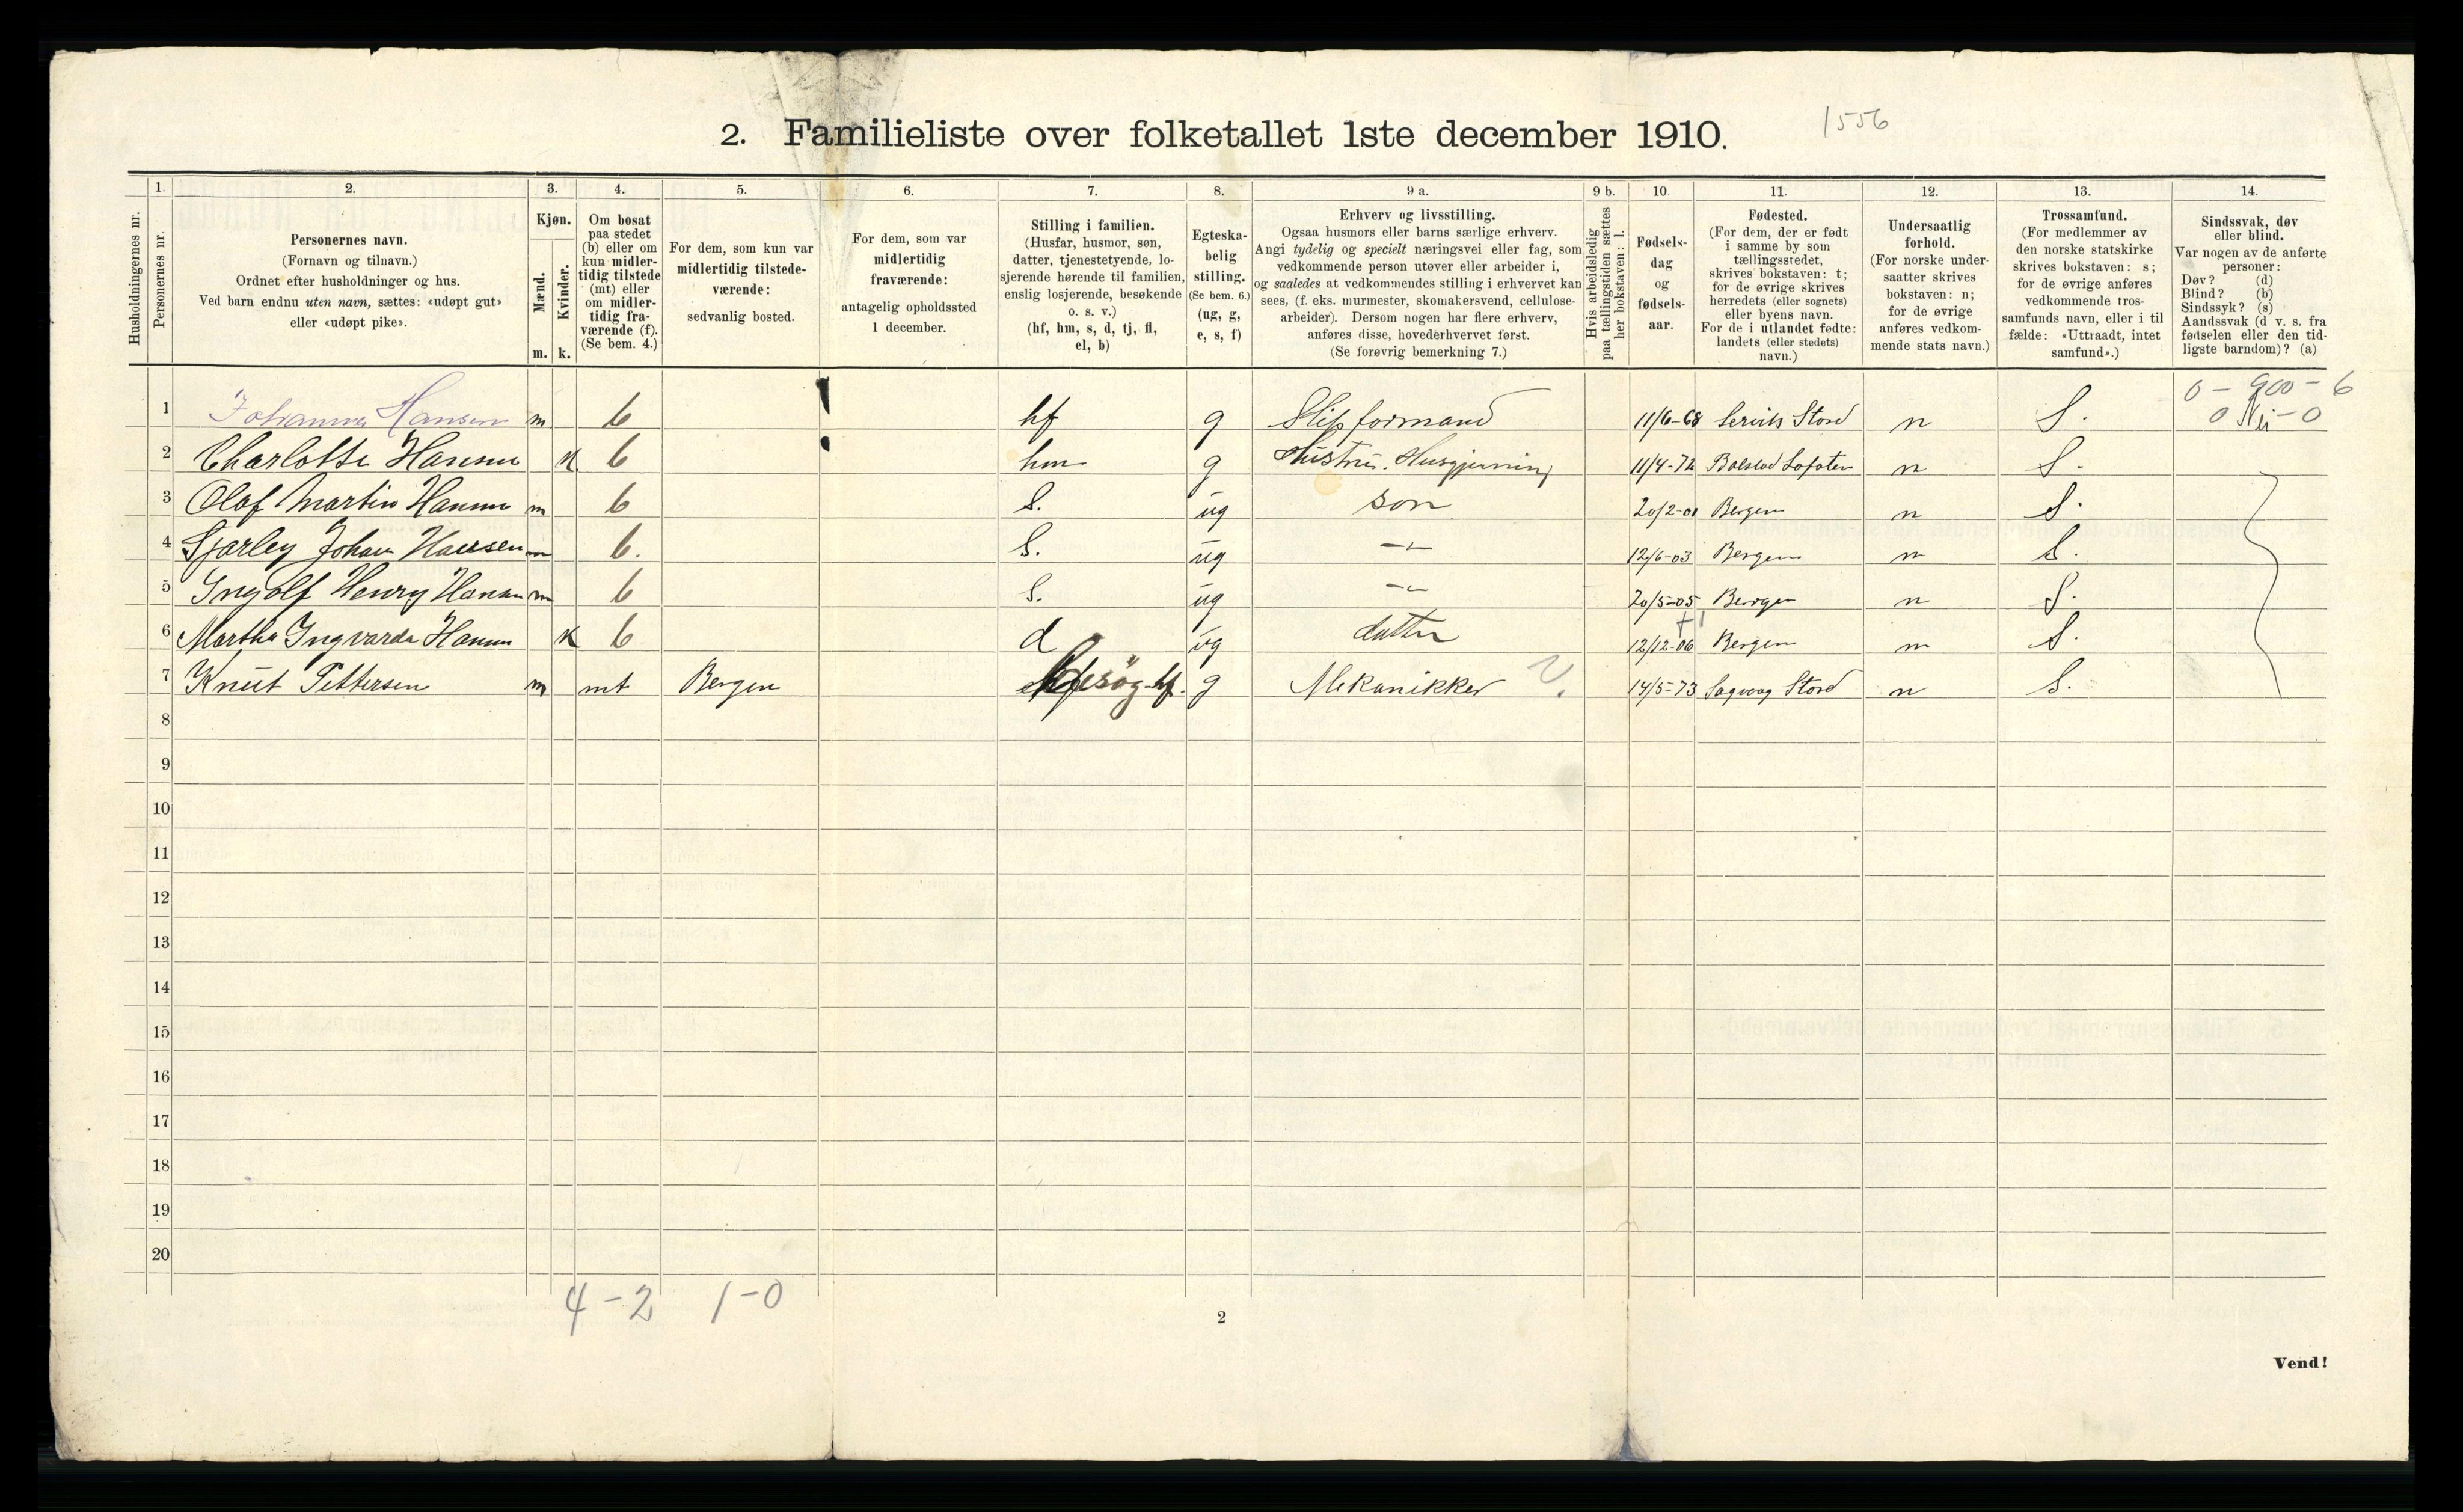 1556
2. Familieliste over folketallet 1ste december 1910.
1. 2. 3. 4. 5. 6. 7. 8. 9 a. 9 b. 10. 11. 12. 13. 14.
Husholdningernes nr.
Personernes nr.
Personernes navn.
(Fornavn og tilnavn.)
Ordnet efter husholdninger og hus.
Ved barn endnu uten navn, sættes: «udøpt gut»
eller «udøpt pike».
Kjøn.
Mænd.
Kvinder.
m. k.
Om bosat
paa stedet
(b) eller om
kun midler-
tidig tilstede
(mt) eller
om midler-
tidig fra-
værende (f).
(Se bem. 4.)
For dem, som kun var
midlertidig tilstede-
værende:
sedvanlig bosted.
For dem, som var
midlertidig
fraværende:
antagelig opholdssted
1 december.
Stilling i familien.
(Husfar, husmor, søn,
datter, tjenestetyende, lo-
sjerende hørende til familien,
enslig losjerende, besøkende
o. s. v.)
(hf, hm, s, d, tj, fl,
el, b)
Egteska-
belig
stilling.
(Se bem. 6.)
(ug, g,
e, s, f)
Erhverv og livsstilling.
Ogsaa husmors eller barns særlige erhverv.
Angi tydelig og specielt næringsvei eller fag, som
vedkommende person utøver eller arbeider i,
og saaledes at vedkommendes stilling i erhvervet kan
sees, (f. eks. murmester, skomakersvend, cellulose-
arbeider). Dersom nogen har flere erhverv,
anføres disse, hovederhvervet først.
(Se forøvrig bemerkning 7.)
Hvis arbeidsledig
paa tællingstiden sættes
her bokstaven: l.
Fødsels-
dag
og
fødsels-
aar.
Fødested.
(For dem, der er født
i samme by som
tællingsstedet,
skrives bokstaven: t;
for de øvrige skrives
herredets (eller sognets)
eller byens navn.
For de i utlandet fødte:
landets (eller stedets)
navn.)
Undersaatlig
forhold.
(For norske under-
saatter skrives
bokstaven: n;
for de øvrige
anføres vedkom-
mende stats navn.)
Trossamfund.
(For medlemmer av
den norske statskirke
skrives bokstaven: s;
for de øvrige anføres
vedkommende tros-
samfunds navn, eller i til
fælde: «Uttraadt, intet
samfund».)
Sindssvak, døv
eller blind.
Var nogen av de anførte
personer:
Døv? (d)
Blind? (b)
Sindssyk? (s)
Aandssvak (d v. s. fra
fødselen eller den tid-
ligste barndom)? (a)
0 - 900 - 6
1 Hansen m b hf g Slipformand 11/6-68 Stord n S. 0 Nei - 0
2 Charlotte Hansen k b hm g Hustru. Husgjerning 11/4-72 Balstad Lofoten n S.
3 Olaf Martin Hansen m b S. ug son 20/2-01 Bergen n S.
4 Sjarley Johan Hansen m b. S. ug -"- 12/6-03 Bergen n S.
5 Ingolf Henry Hansen m b S. ug -"- 20/5-05 Bergen n S.
6 Martha Ingvarda Hansen k b d ug datter 12/12-06 Bergen n S.
7 Knut Pettersen m mt Bergen besøg hf. g Mekanikker 14/5-73 Sagvaag Stord n S.
8
9
10
11
12
13
14
15
16
17
18
19
20
4 - 2 1 - 0
2
Vend!